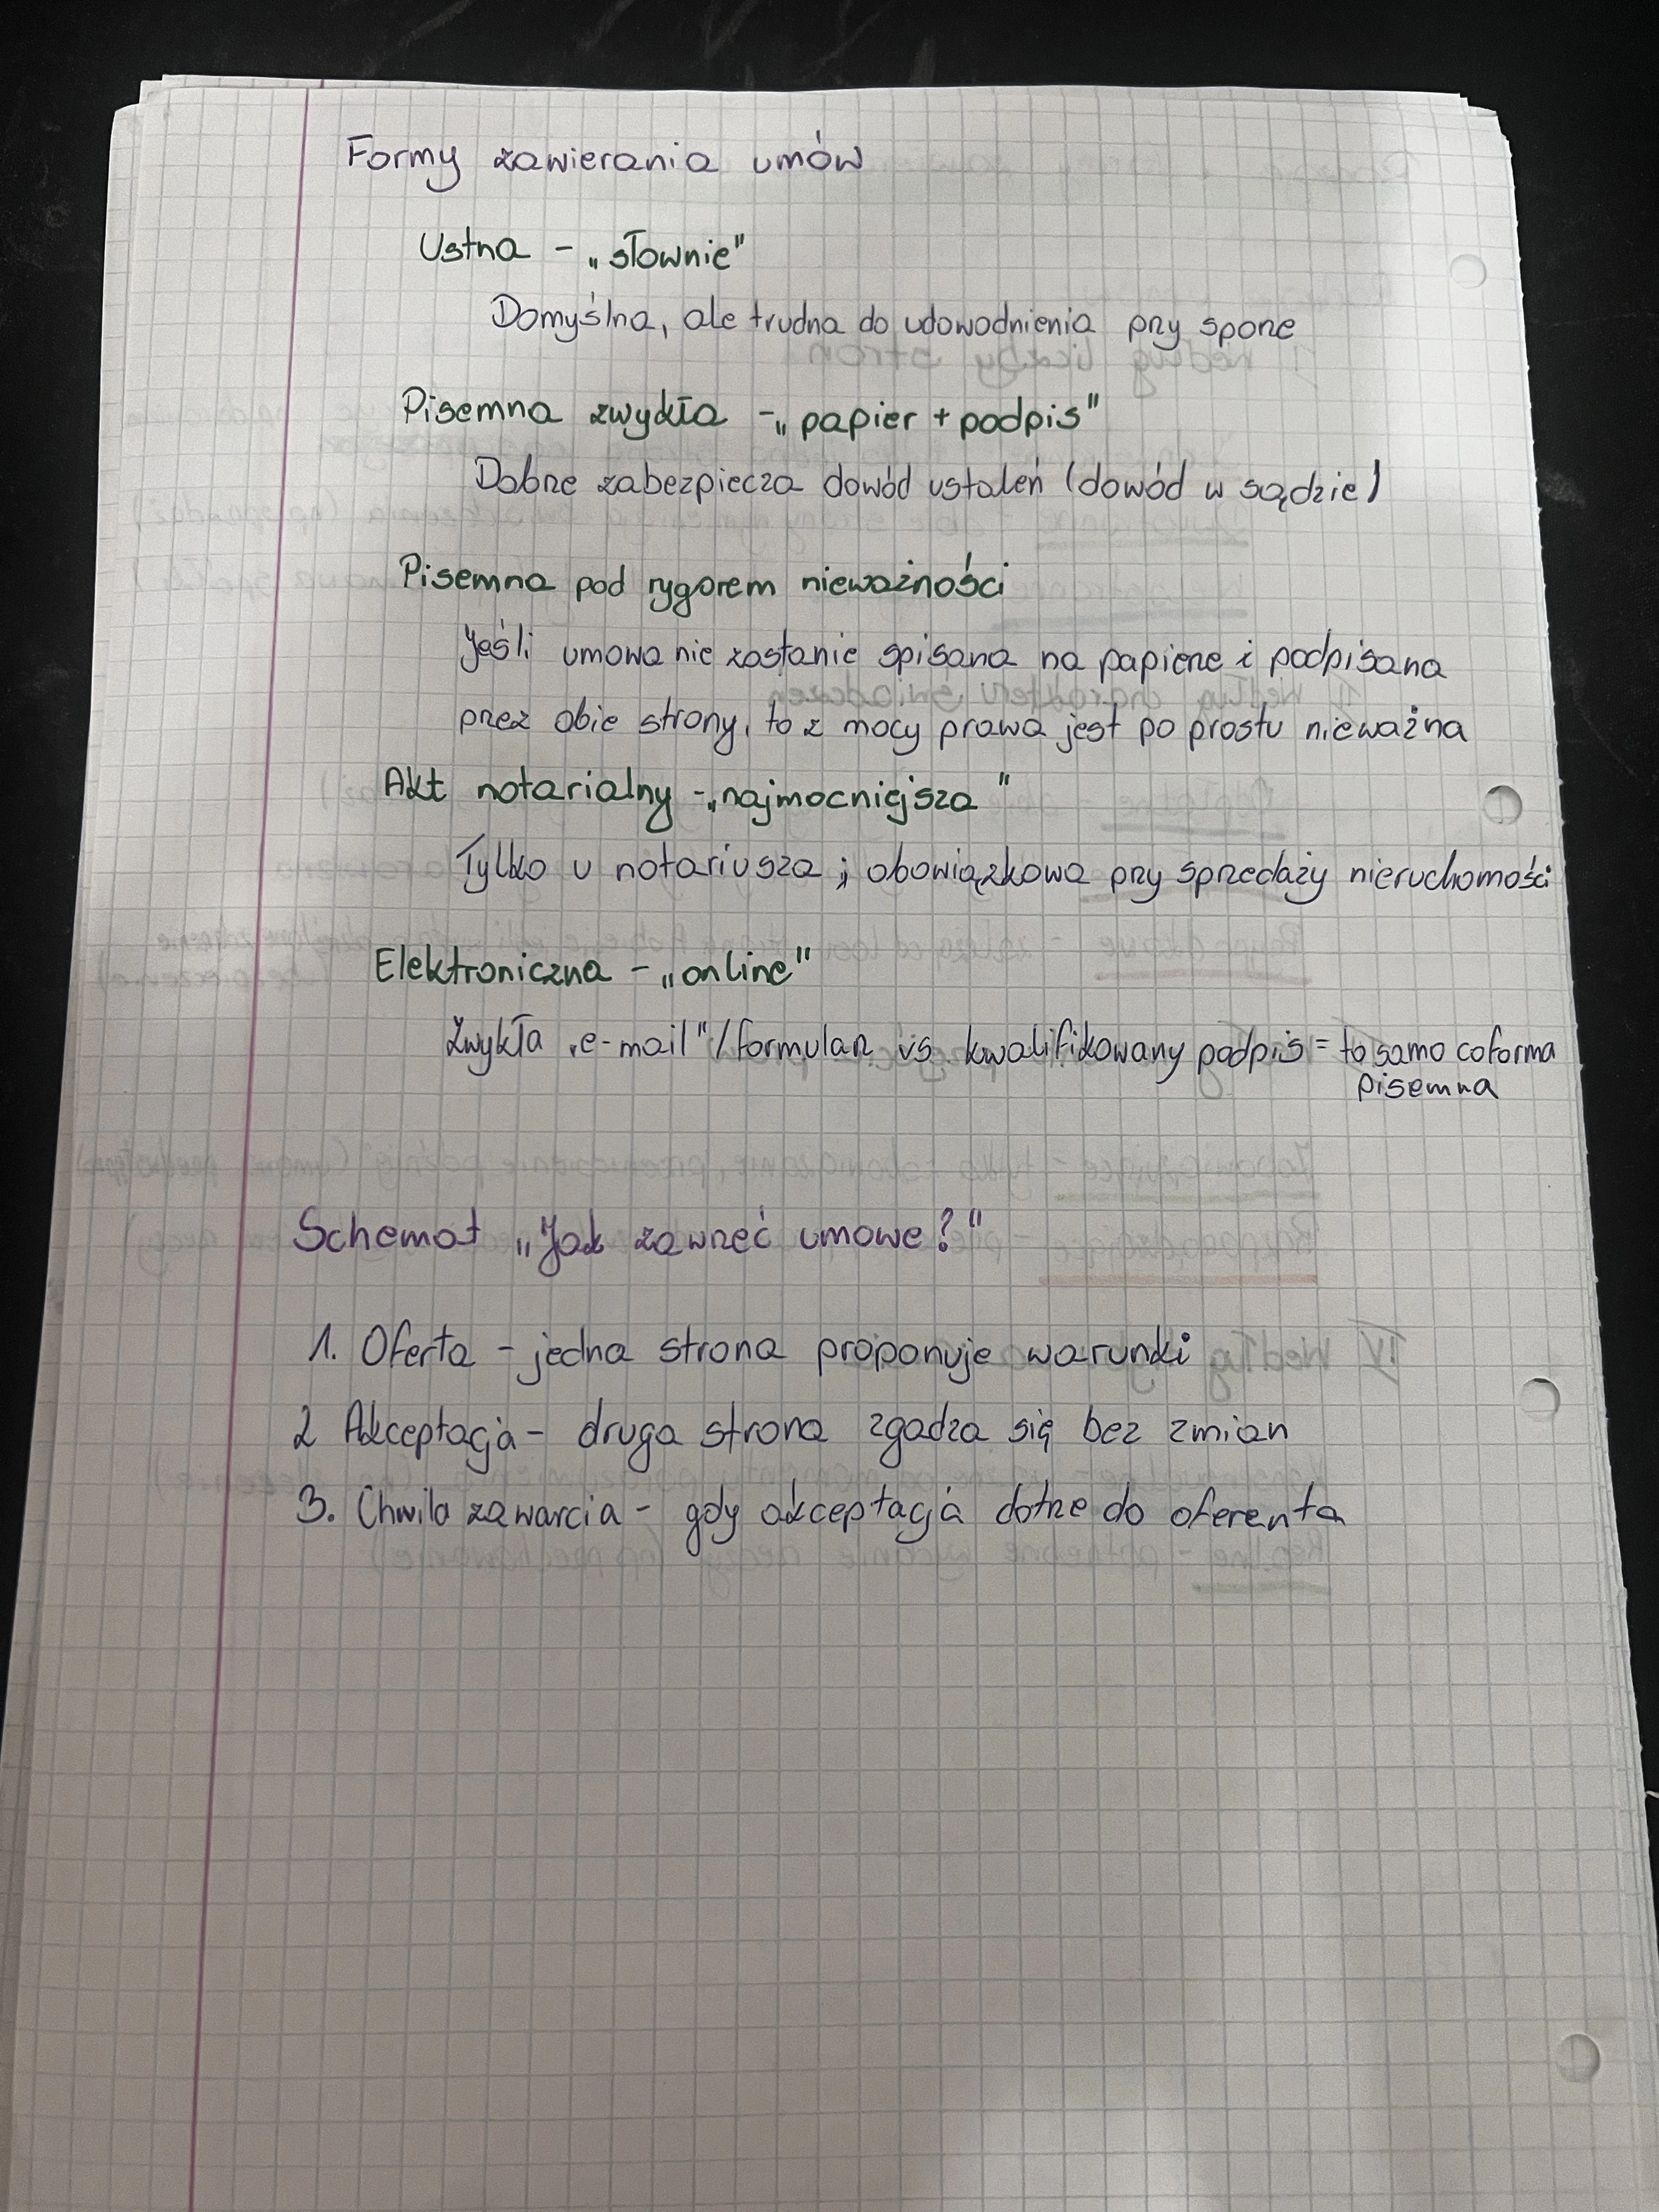 Formy zawierania umów
Ustna - „słownie"
Domyślna, ale trudna do udowodnienia przy sporze
Pisemna zwykła - „papier + podpis"
Dobrze zabezpiecza dowód ustaleń (dowód w sądzie)
Pisemna pod rygorem nieważności
Jeśli umowa nie zostanie spisana na papierze i podpisana
przez obie strony, to z mocy prawa jest po prostu nieważna
Akt notarialny - „najmocniejsza"
Tylko u notariusza ; obowiązkowa przy sprzedaży nieruchomości
Elektroniczna - „online"
Zwykła „e-mail"/formularz vs kwalifikowany podpis = to samo co forma
pisemna
Schemat „Jak zawrzeć umowe?"
1. Oferta - jedna strona proponuje warunki
2 Akceptacja - druga strona zgadza się bez zmian
3. Chwila zawarcia - gdy akceptacja dotrze do oferenta